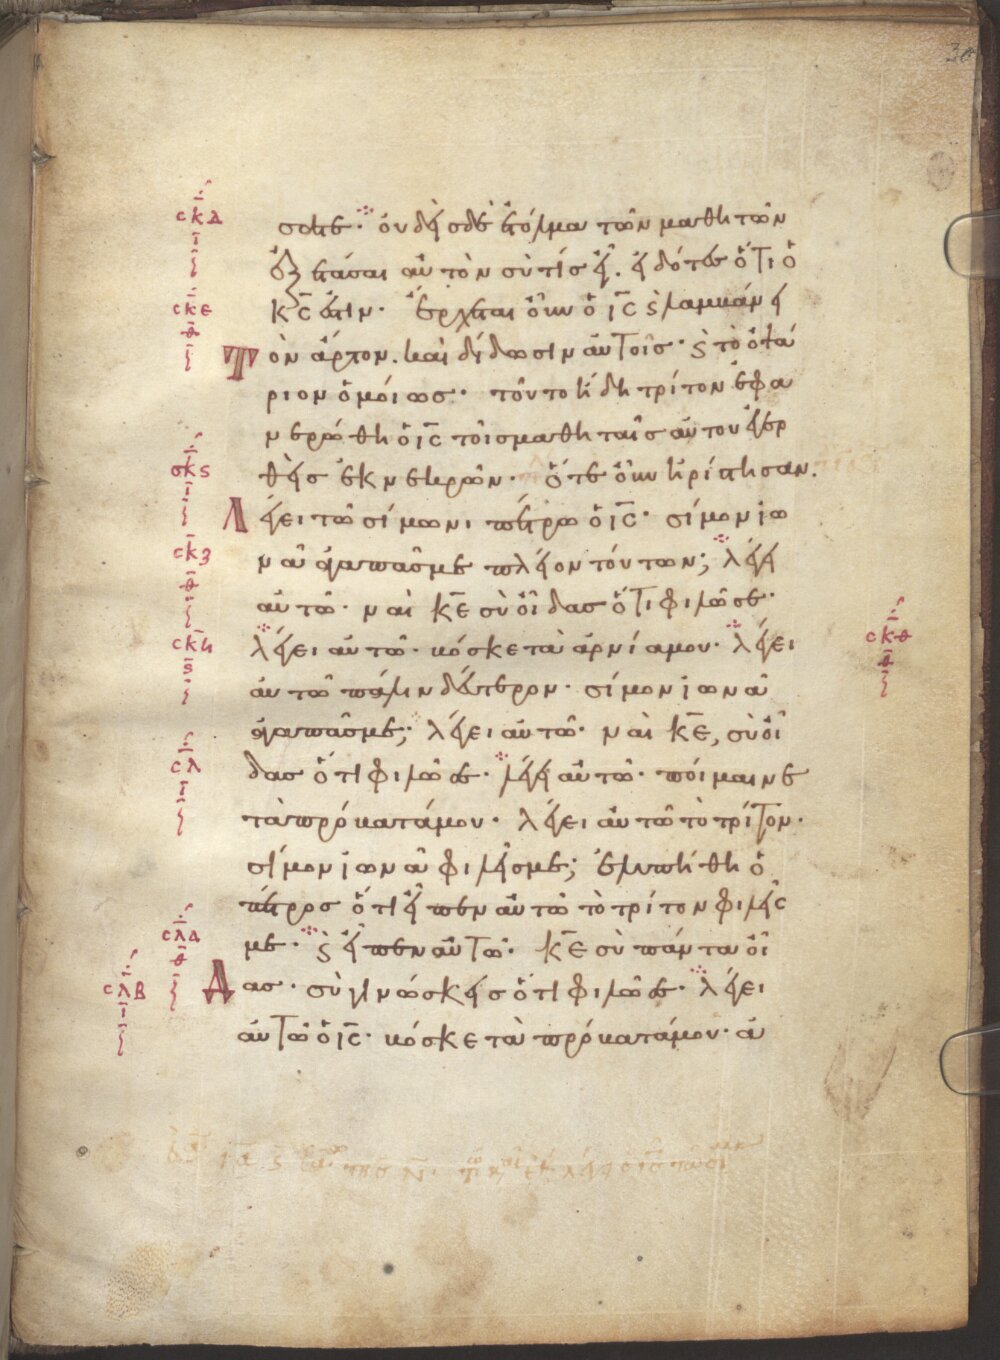 30
σατε· οὐδεὶς δὲ ἐτόλμα τῶν μαθητῶν
ἐξετάσαι αὐτὸν σὺ τίς εἶ. εἰδότες ὅτι ὁ
κ̅ς̅ ἐστιν· ἔρχεται οὖν ὁ ι̅ς̅ ϛ λαμβάνει
τὸν ἄρτον. καὶ δίδωσιν αὐτοῖς· ϛ τὸ ὀψά
ριον ὁμοίως· τοῦτο ἤδη τρίτον ἐφα
νερώθη ὁ ι̅ς̅ τοῖς μαθηταῖς αὐτοῦ ἐγερ
θεὶς ἐκ νεκρῶν· ὅτε οὖν ἠρίστησαν.
λέγει τῶ σίμωνι πέτρω ὁ ι̅ς̅· σίμον ἰω
νᾶ ἀγαπᾶς με πλεῖον τούτων; λέγει
αὐτῶ· ναὶ κ̅ε̅ σὺ οἶδας ὅτι φιλῶ σε·
λέγει αὐτῶ· βόσκε τὰ ἀρνία μου· λέγει
αὐτῶ πάλιν δεύτερον· σίμον ἰωνᾶ
ἀγαπᾶς με; λέγει αὐτῶ· ναὶ κ̅ε̅, σὺ οἶ
δας ὅτι φιλῶ σε· λέγει αὐτῶ· ποίμαινε
τὰ πρόβατά μου· λέγει αὐτῶ τὸ τρίτον·
σίμον ἰωνᾶ φιλεῖς με; ἐλυπήθη ὁ
πέτρος ὅτι εἶπεν αὐτῶ τὸ τρίτον φιλεῖς
με· ϛ εἶπεν αὐτῶ· κ̅ε̅ σὺ πάντα οἶ
δας· σὺ γινώσκεις ὅτι φιλῶ σε· λέγει
αὐτῶ ὁ ι̅ς̅· βόσκε τὰ πρόβατά μου· ἀ
σκδ
ι
σκε
θ
σκϛ
ι
σκζ
θ
σκη
ϛ
σκθ
σλ
ι
σλα
θ
σλβ
ι